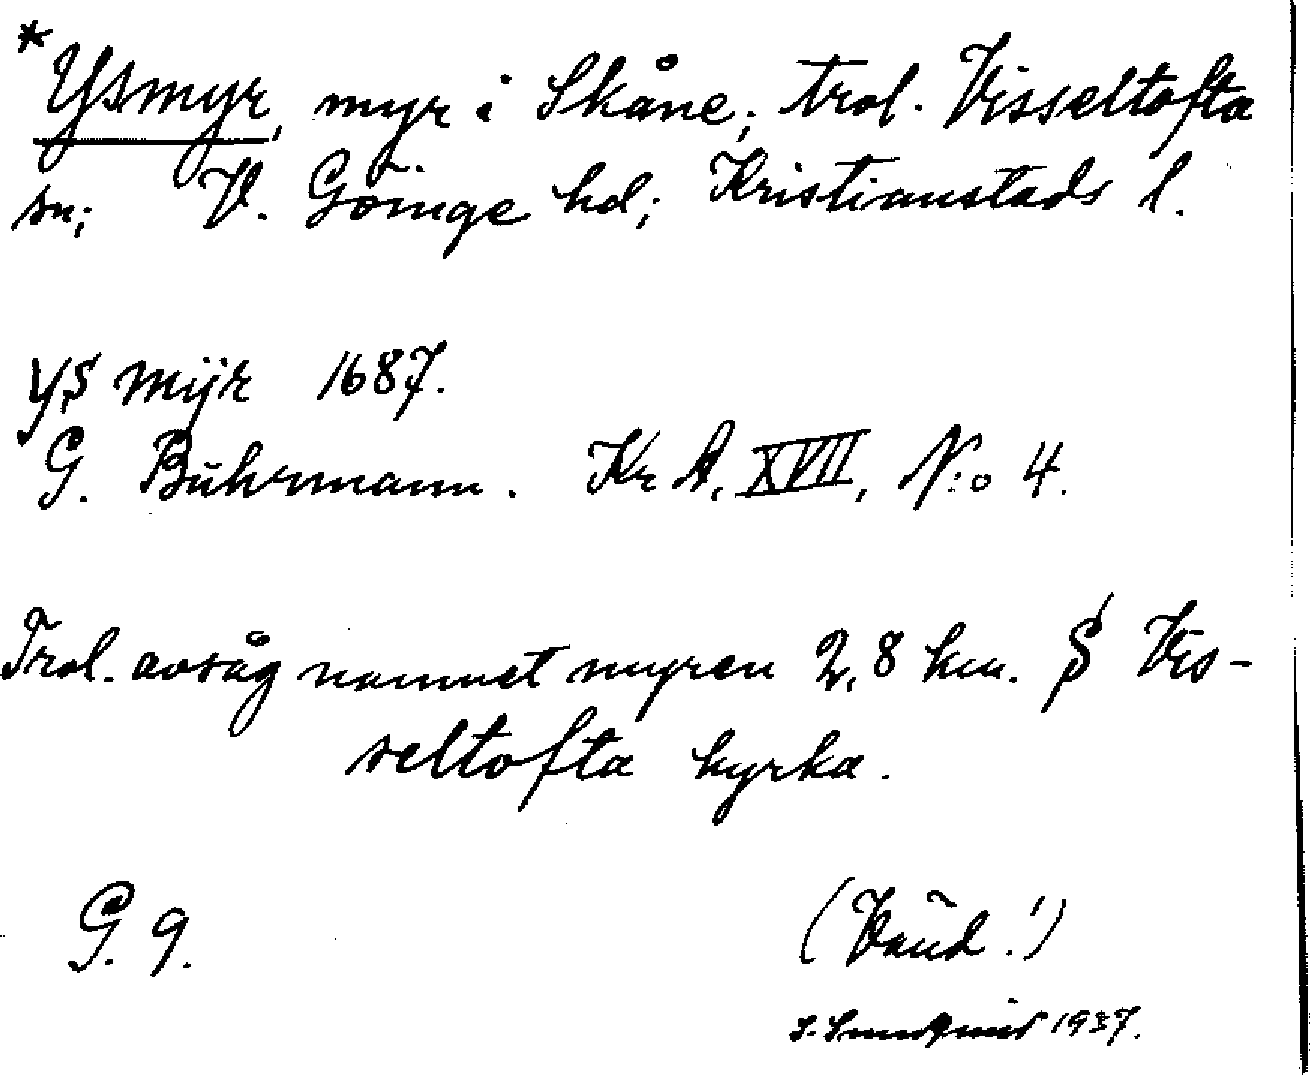 *Ysmyr, myr i Skåne; trol. Visseltofta
sn; V. Göinge hd; Kristianstads l.
ys mÿr 1687.
G. Buhrmann. Kr A, XVII, N:o 4.
Trol. avsåg namnet myren 2,8 km. S Vis-
seltofta kyrka.
G. 9. (Vänd!)
S. Sundqvist 1937.